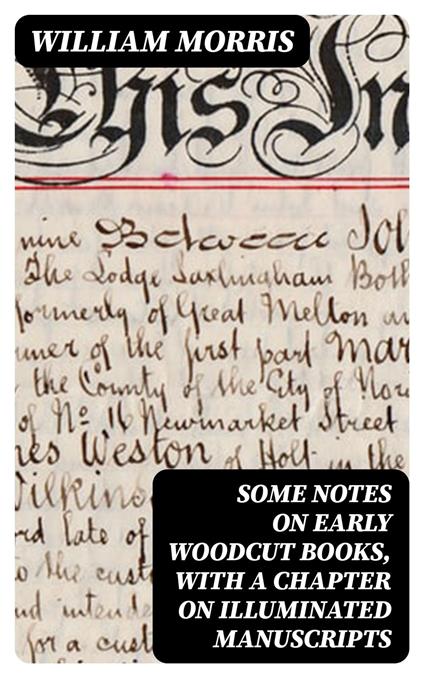 WILLIAM MORRIS
This In
nine Between Joh
The Lodge Saxlingham Both
formerly of Great Melton an
of the first part Mar
the County of the City of Nor
of No 16 Newmarket Street
Weston of Holt in the
late of
the
for a
SOME NOTES
ON EARLY
WOODCUT BOOKS,
WITH A CHAPTER
ON ILLUMINATED
MANUSCRIPTS